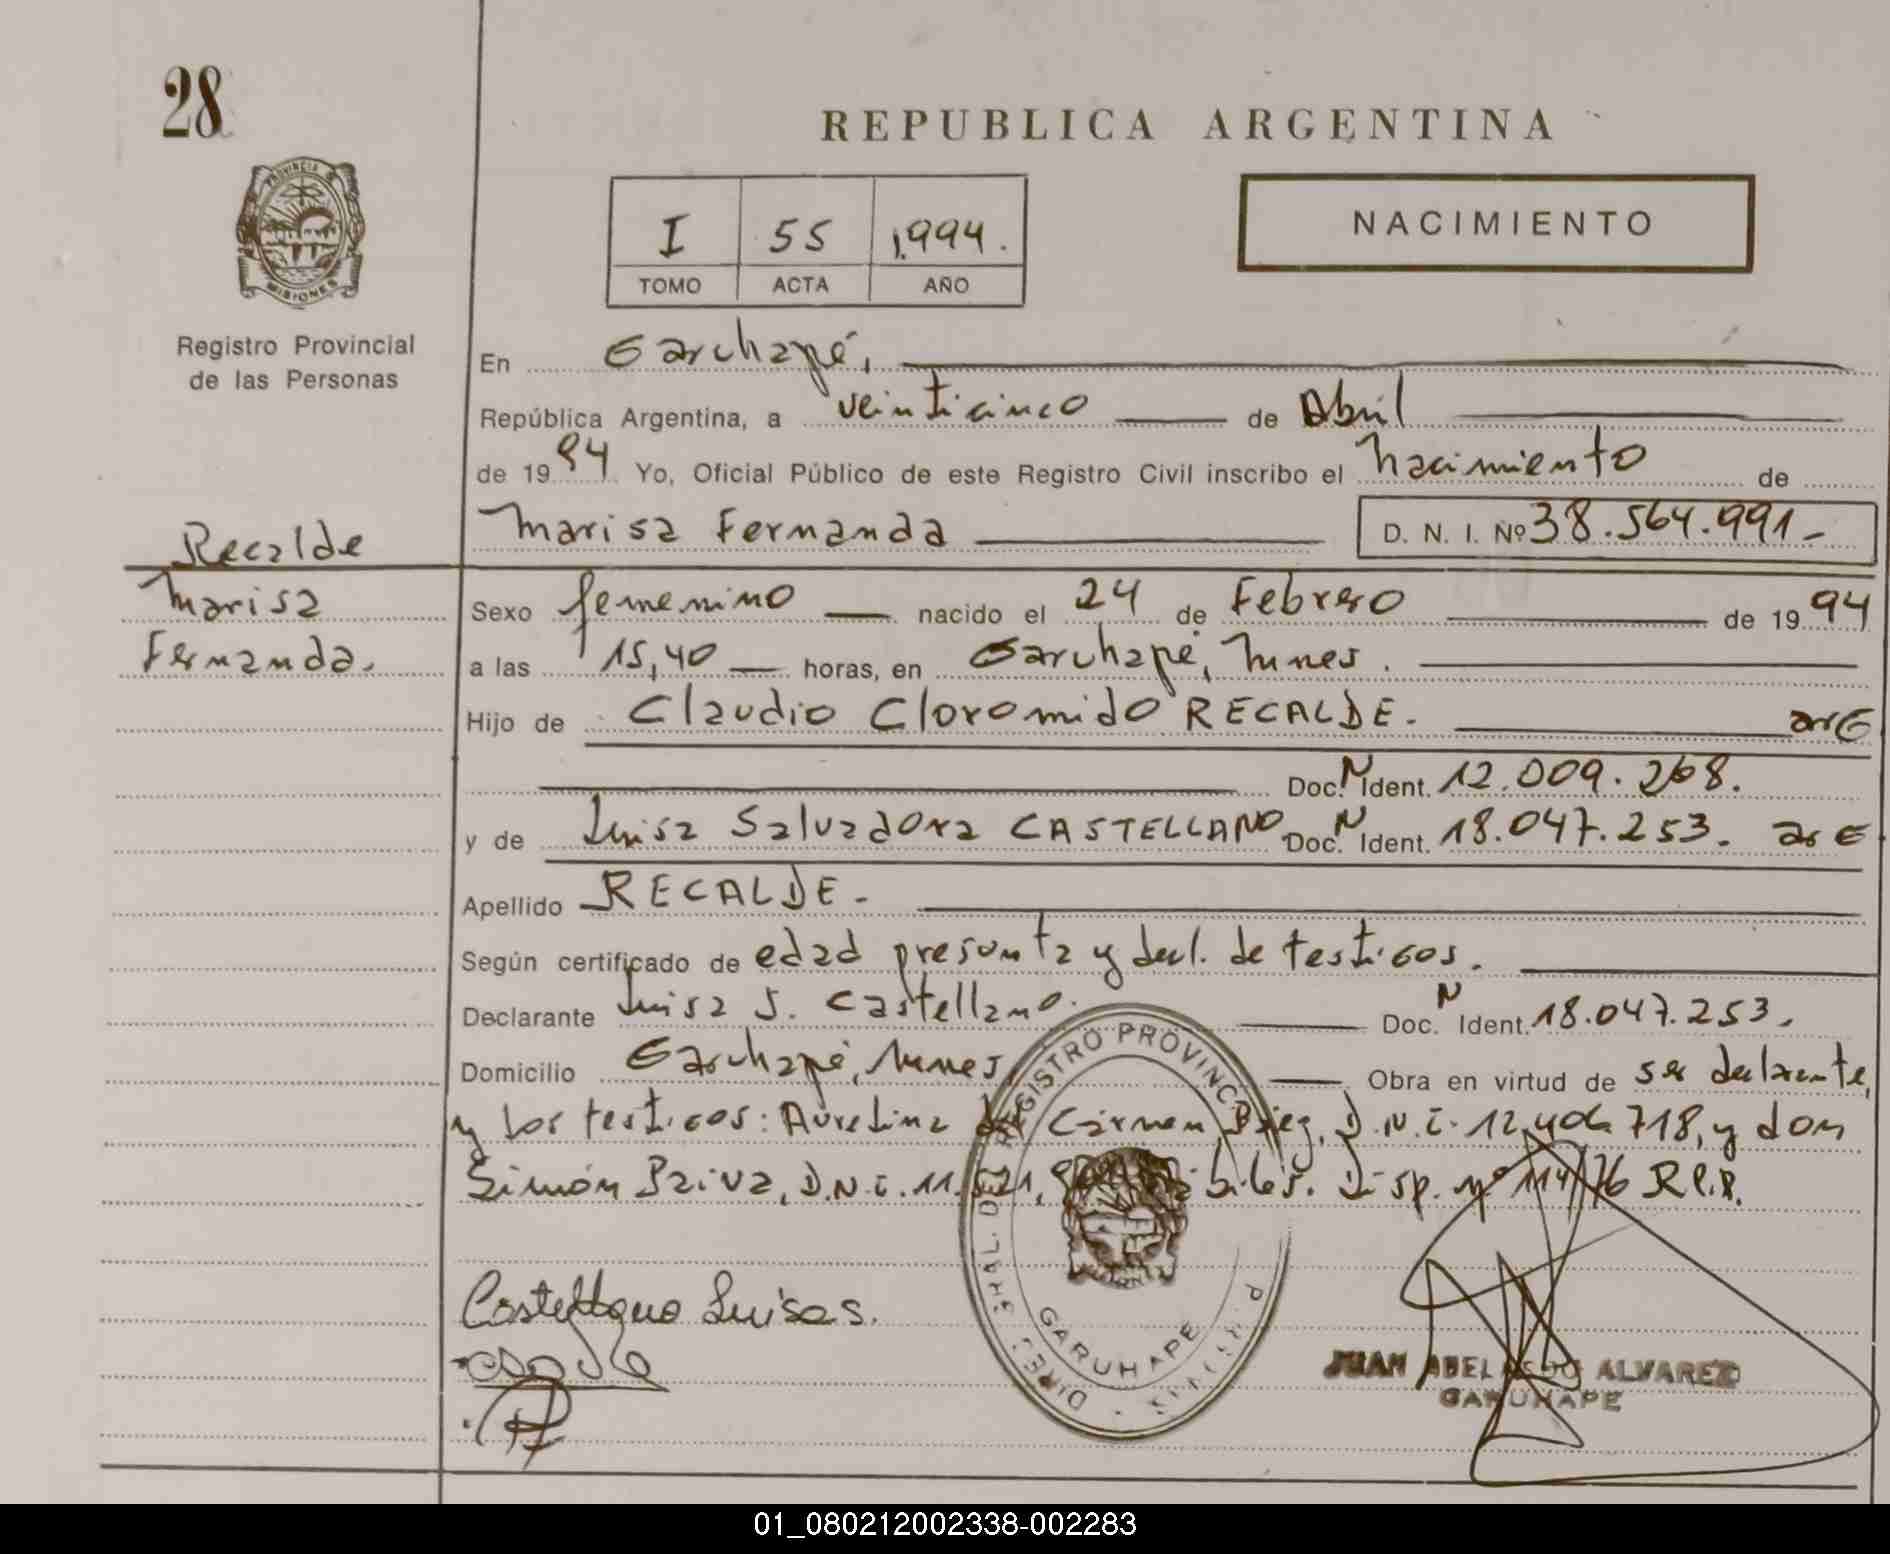 28
REPUBLICA ARGENTINA
PROVINCIA D
MISIONES
Registro Provincial
de las Personas
I 55 1.994.
TOMO ACTA AÑO
NACIMIENTO
En Garuhapé,
República Argentina, a veinticinco de Abril
de 1994 Yo, Oficial Público de este Registro Civil inscribo el nacimiento de
Marisa Fernanda D. N. I. Nº 38.564.991-
Recalde
Marisa
Fernanda.
Sexo femenino nacido el 24 de Febrero de 1994
a las 15,40 horas, en Garuhapé, Mnes.
Hijo de Claudio Cloromido RECALDE. arG
Doc. N Ident. 12.009.268.
y de Luisa Salvadora CASTELLANO Doc. N Ident. 18.047.253. arG
Apellido RECALDE.
Según certificado de edad presunta y decl. de testigos.
Declarante Luisa S. Castellano. Doc. N Ident. 18.047.253.
Domicilio Garuhapé, Mnes, Obra en virtud de ser declarante,
y los testigos: Aurelina del Cármen D.N.I. 12 718, y don
Simón Paiva, D.N.I. 11. Disp. nº 114/76 R.P.P.
REGISTRO PROVINC
GARUHAPE
Castellano Luisa S.
JUAN ABEL ALVAREZ
GARUHAPE
01_080212002338-002283